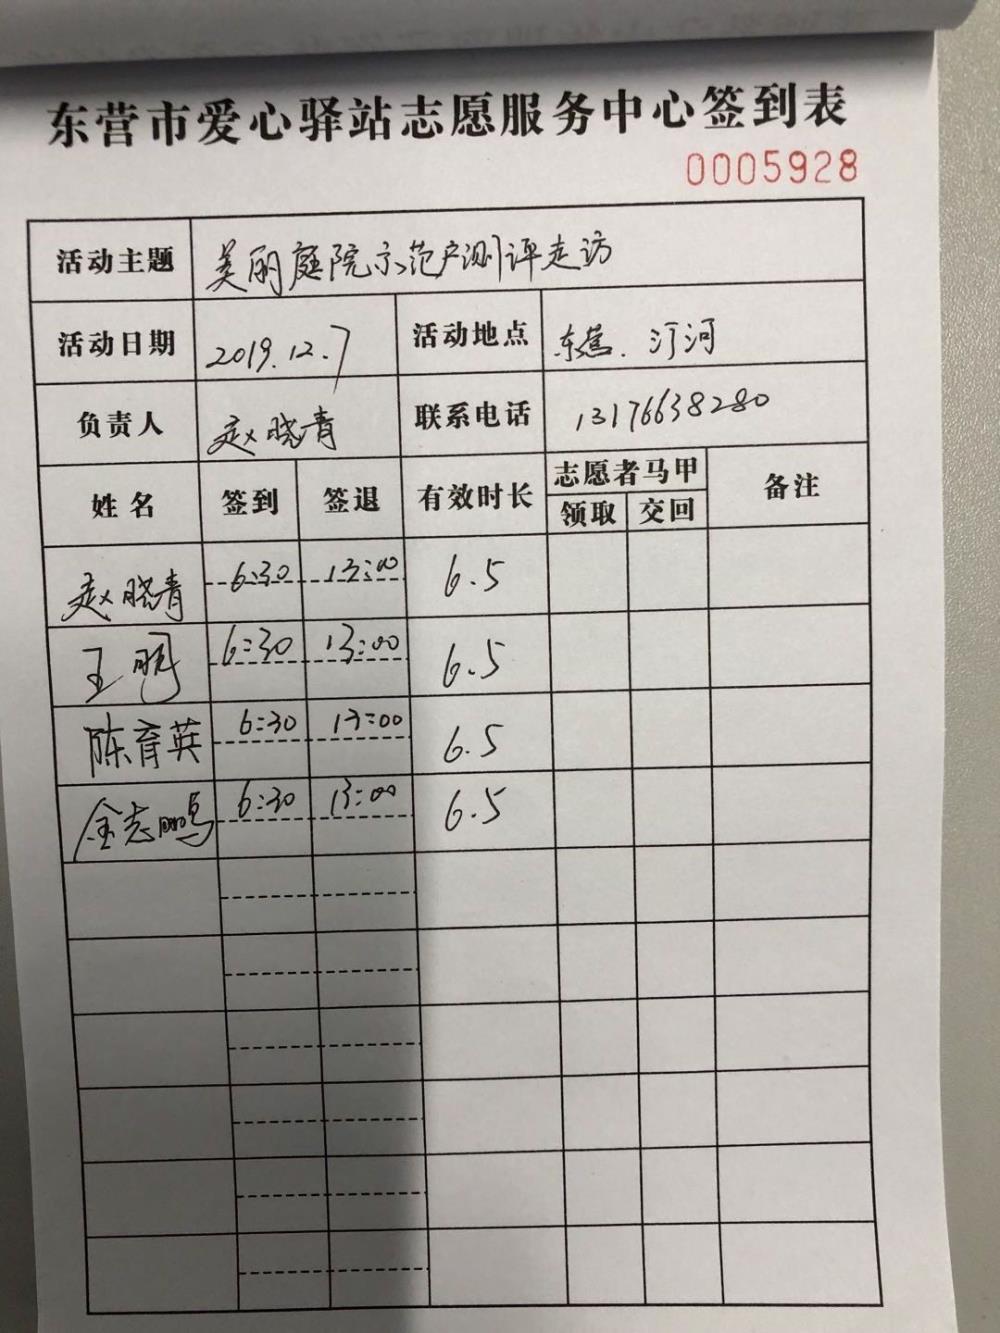 东营市爱心驿站志愿服务中心签到表
0005928
活动主题 美丽庭院示范户测评走访
活动日期 2019.12.7 活动地点 东营、汀河
负责人 赵晓青 联系电话 13176638280
姓名 签到 签退 有效时长 志愿者马甲 备注
领取 交回
赵晓青 6:30 13:00 6.5
王鹏 6:30 13:00 6.5
陈育英 6:30 13:00 6.5
金志鹏 6:30 13:00 6.5